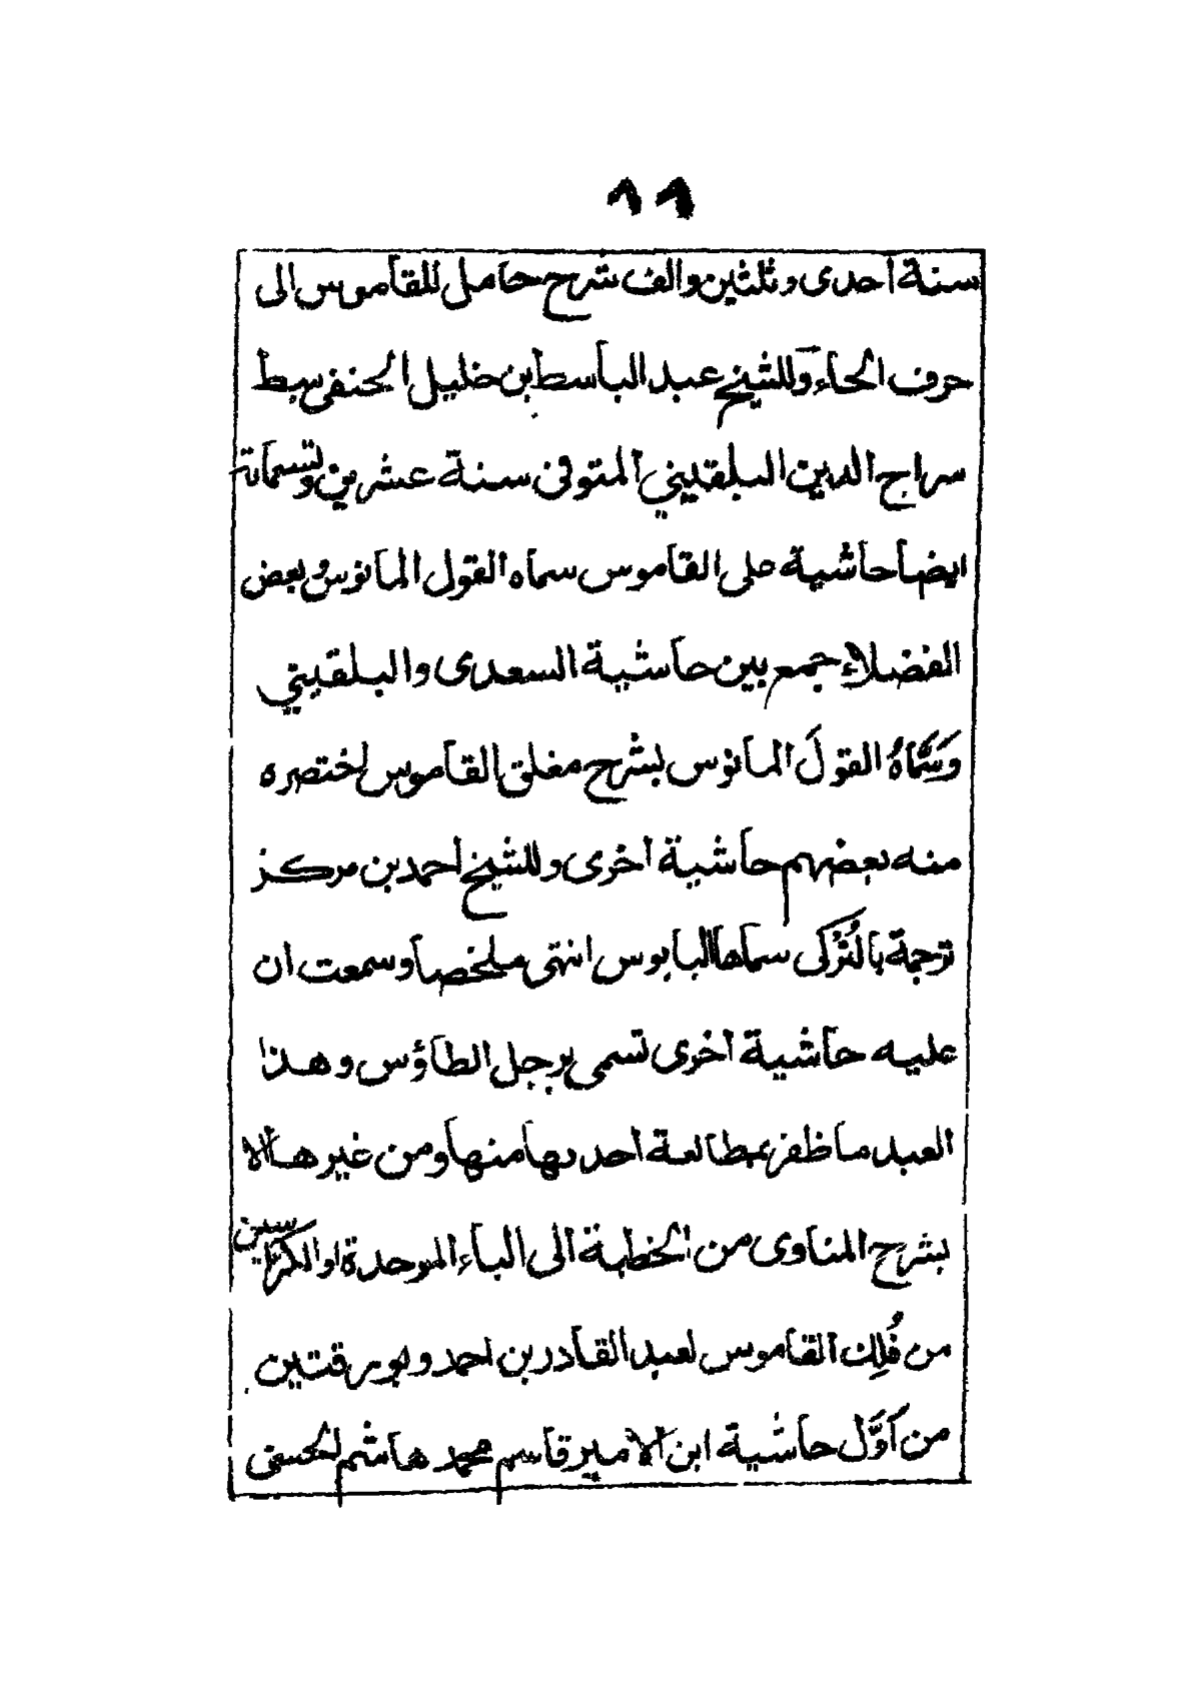 ٩٩
سنة احدى وثلثين والف شرح حامل للقاموس الى
حرف الحاء وللشيخ عبد الباسط بن خليل الحنفي سبط
سراج الدين البلقيني المتوفى سنة عشرين وتسمائة
ايضا حاشية على القاموس سماه القول المانوس وبعض
الفضلاء جمع بين حاشية السعدى والبلقيني
وَسَمَّاهُ القولَ المانؤس بشرح مغلق القاموس اختصره
منه بعضهم حاشية اخرى وللشيخ احمد بن مركز
ترجمة بالتُرْكى سماها البابوس انتهى ملخصا وسمعت ان
عليه حاشية اخرى تسمى برجل الطاؤس وهذا
العبد ما ظفر بمطالعة احد بها منها ومن غيرها الا
بشرح المناوى من الخطبة الى الباء الموحدة او الكراسين
من فُلِك القاموس لعبد القادر بن احمد وبورقتين
من اَوَّل حاشية ابن الامير قاسم محمد هاشم الحسنى